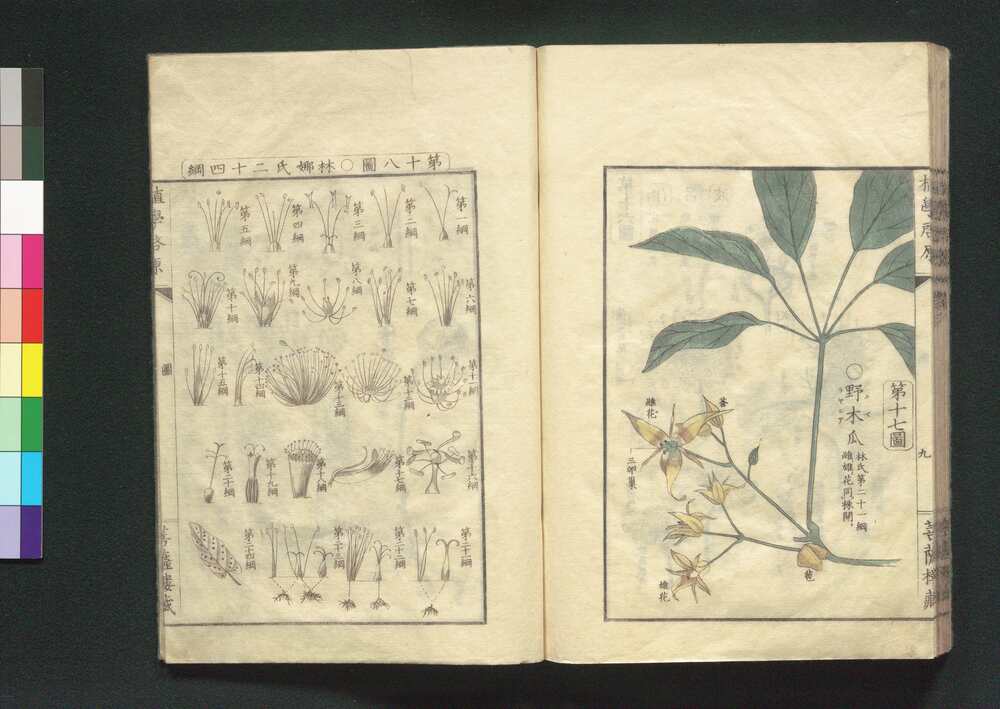 第十七圖
○野木瓜
林氏第二十一綱
雌雄花同株開
雌花
蕾
三卵巢
苞
雄花
九
菩薩樓藏
第十八圖○林娜氏二十四綱
第一綱
第二綱
第三綱
第四綱
第五綱
第六綱
第七綱
第八綱
第九綱
第十綱
第十一綱
第十二綱
第十三綱
第十四綱
第十五綱
第十六綱
第十七綱
第十八綱
第十九綱
第二十綱
第二十一綱
第二十二綱
第二十三綱
第二十四綱
植學啓原
圖
菩薩樓藏